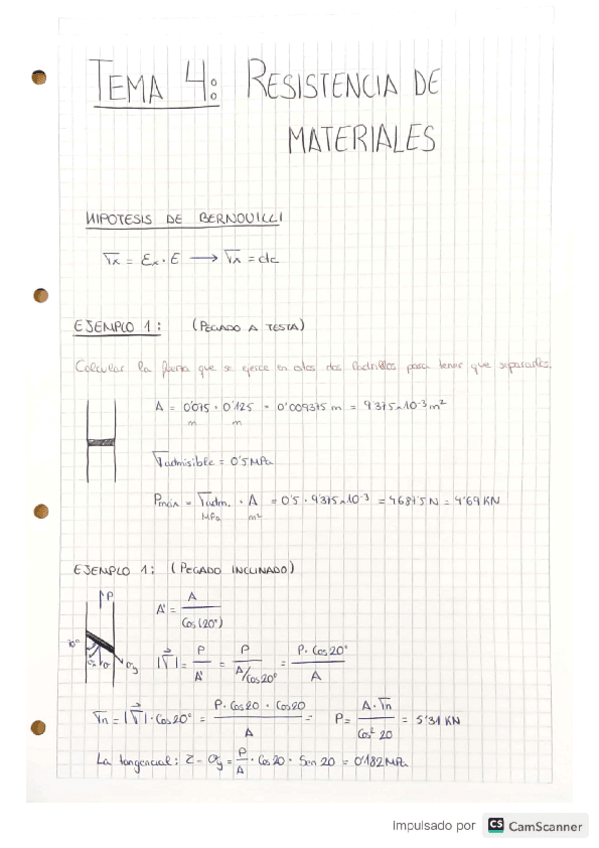 TEMA 4: RESISTENCIA DE
MATERIALES
HIPOTESIS DE BERNOUILLI
σx = Ex · E → σx = cte
EJEMPLO 1: (PEGADO A TESTA)
Calcular la fuerza que se ejerce en estos dos ladrillos para tener que separarlos.
A = 0'075 · 0'125 = 0'009375 m = 9'375x10⁻³ m²
m m
σadmisible = 0'5 MPa
Pmáx = σadm. · A = 0'5 · 9'375x10⁻³ = 4687'5 N = 4'69 KN
MPa m²
EJEMPLO 1: (PEGADO INCLINADO)
P
A' = A / Cos(20°)
|σ| = P / A' = P / A/Cos20° = P · Cos20° / A
σn = |σ| · Cos20° = P · Cos20 · Cos20 / A = P = A · σn / Cos² 20 = 5'31 KN
La tangencial: τ = σy = P/A · Cos20 · Sen 20 = 0'182 MPa
Impulsado por CS CamScanner